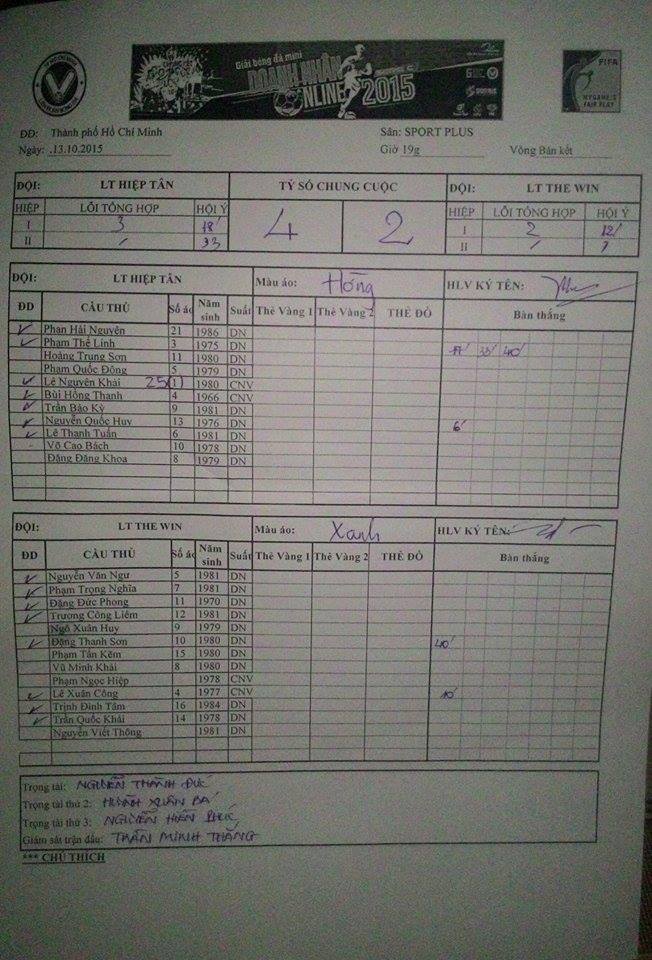 Giải bóng đá mini
DOANH NHÂN
ONLINE 2015
FIFA
MY GAME IS
FAIR PLAY
ĐĐ: Thành phố Hồ Chí Minh Sân: SPORT PLUS
Ngày: 13.10.2015 Giờ 19g Vòng Bán kết
ĐỘI: LT HIỆP TÂN TỶ SỐ CHUNG CUỘC ĐỘI: LT THE WIN
HIỆP LỖI TỔNG HỢP HỘI Ý 4 2 HIỆP LỖI TỔNG HỢP HỘI Ý
I 3 18' I 2 12'
II 33 II
ĐỘI: LT HIỆP TÂN Màu áo: Hồng HLV KÝ TÊN:
ĐD CẦU THỦ Số áo Năm sinh Suất Thẻ Vàng 1 Thẻ Vàng 2 THẺ ĐỎ Bàn thắng
Phan Hải Nguyên 21 1986 DN
Phạm Thế Linh 3 1975 DN
Hoàng Trung Sơn 11 1980 DN 33' 40'
Phạm Quốc Đông 5 1979 DN
Lê Nguyên Khải 25 (1) 1980 CNV
Bùi Hồng Thanh 4 1966 CNV
Trần Bảo Kỳ 9 1981 DN
Nguyễn Quốc Huy 13 1976 DN 6'
Lê Thanh Tuấn 6 1981 DN
Võ Cao Bách 10 1978 DN
Đặng Đăng Khoa 8 1979 DN
ĐỘI: LT THE WIN Màu áo: Xanh HLV KÝ TÊN:
ĐD CẦU THỦ Số áo Năm sinh Suất Thẻ Vàng 1 Thẻ Vàng 2 THẺ ĐỎ Bàn thắng
Nguyễn Văn Ngư 5 1981 DN
Phạm Trọng Nghĩa 7 1981 DN
Đặng Đức Phong 11 1970 DN
Trương Công Liêm 12 1981 DN
Ngô Xuân Huy 9 1979 DN
Đặng Thanh Sơn 10 1980 DN 40'
Phạm Tấn Kẽm 15 1980 DN
Vũ Minh Khải 8 1980 DN
Phạm Ngọc Hiệp 1978 CNV
Lê Xuân Công 4 1977 CNV 10'
Trịnh Đình Tâm 16 1984 DN
Trần Quốc Khải 14 1978 DN
Nguyễn Viết Thông 1981 DN
Trọng tài: NGUYỄN THÀNH ĐỨC
Trọng tài thứ 2: HUỲNH XUÂN BÁ
Trọng tài thứ 3: NGUYỄN HIỀN PHÚC
Giám sát trận đấu: TRẦN MINH THẮNG
*** CHÚ THÍCH